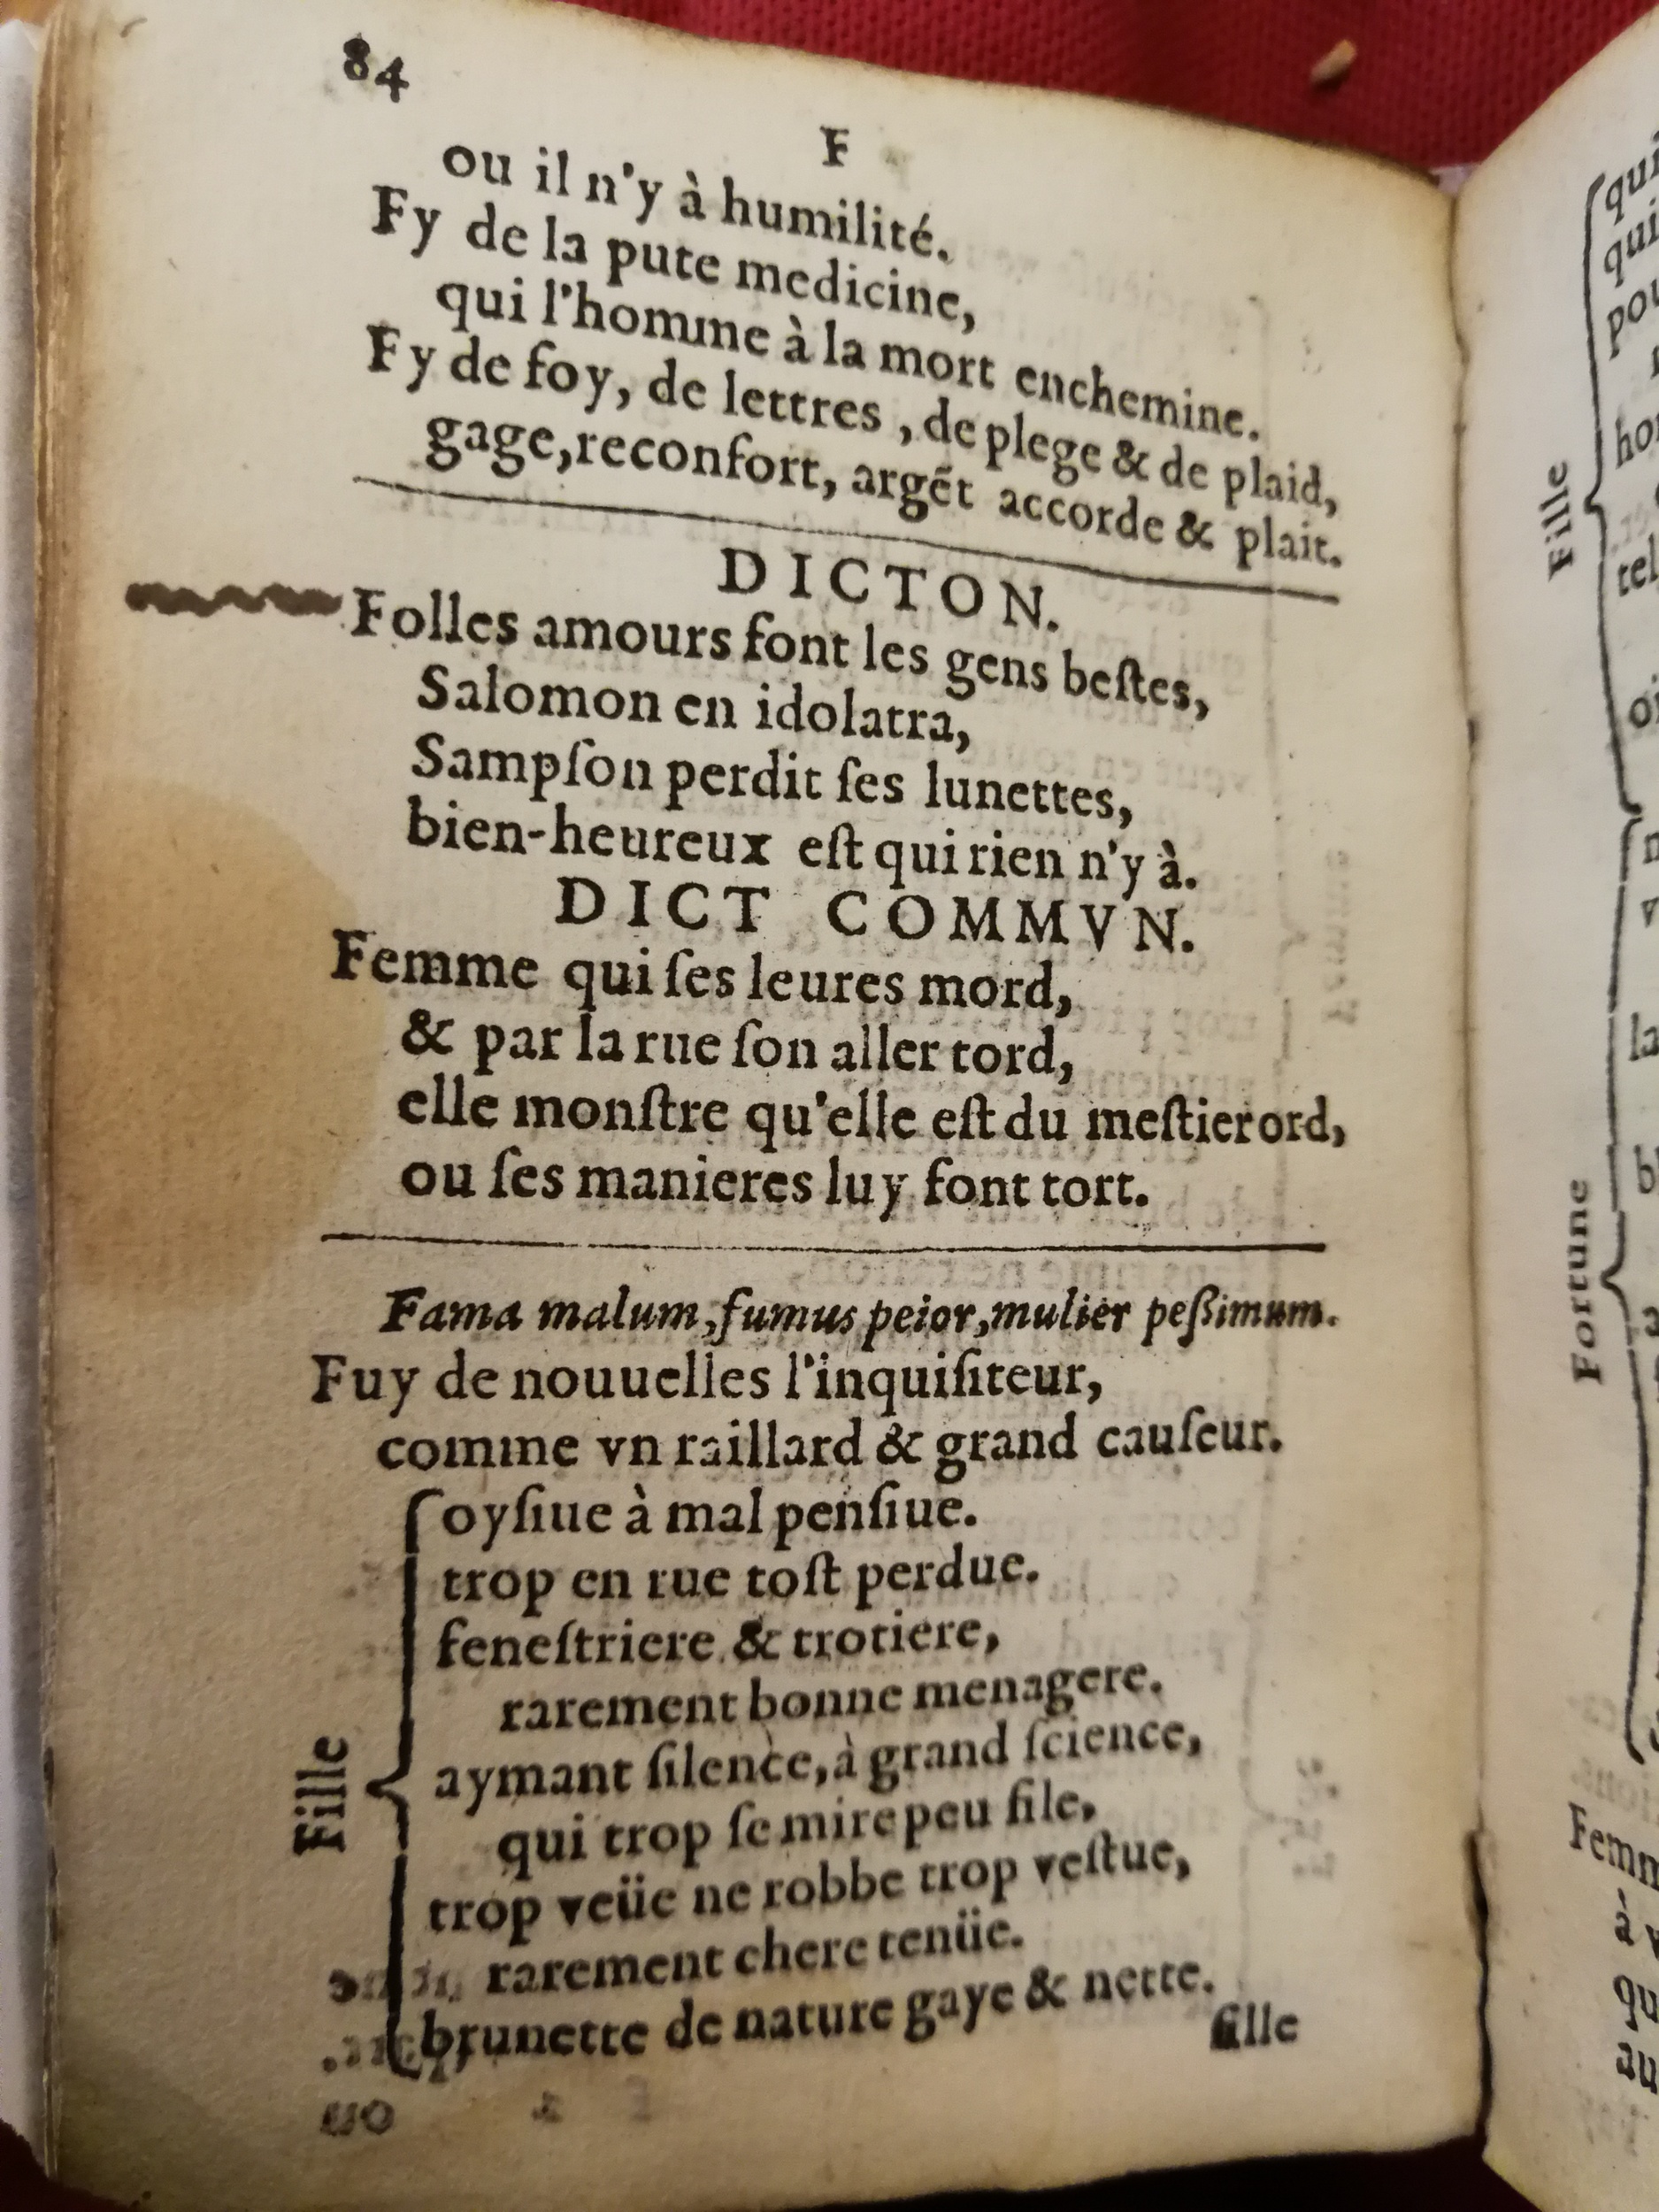 84
F
ou il n'y à humilité.
Fy de la pute medicine,
qui l'homme à la mort enchemine.
Fy de foy, de lettres, de plege & de plaid,
gage, reconfort, argẽt accorde & plait.
DICTON.
Folles amours font les gens beſtes,
Salomon en idolatra,
Sampſon perdit ſes lunettes,
bien-heureux eſt qui rien n'y à.
DICT COMMVN.
Femme qui ſes leures mord,
& par la rue ſon aller tord,
elle monſtre qu'elle eſt du meſtier ord,
ou ſes manieres luy font tort.
Fama malum, fumus peior, mulier peßimum.
Fuy de nouuelles l'inquiſiteur,
comme vn raillard & grand cauſeur.
Fille
oyſiue à mal penſiue.
trop en rue toſt perdue.
feneſtriere & trotiere,
rarement bonne menagere.
aymant ſilence, à grand ſcience,
qui trop ſe mire peu file,
trop veüe ne robbe trop veſtue,
rarement chere tenüe.
brunette de nature gaye & nette.
fille
qui
qui
Fille
Fortune
la
Femm
à v
qu
au